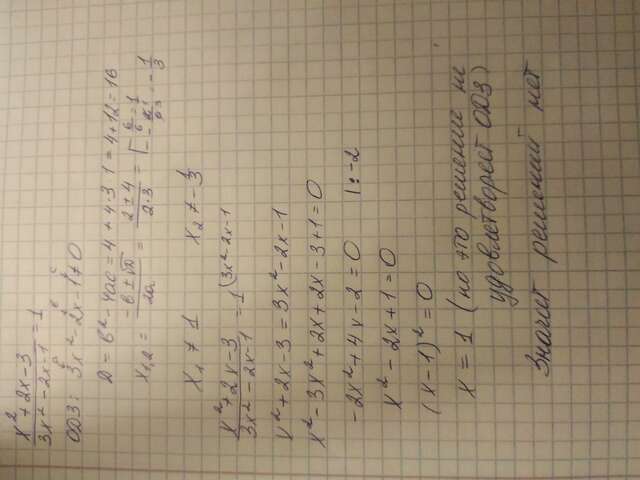 x²+2x-3 / 3x²-2x-1 = 1
ОДЗ: 3x²-2x-1≠0
a b c
D = b²-4ac = 4+4·3·1 = 4+12 = 16
x₁,₂ = -b±√D / 2a = 2±4 / 2·3 = [ 6/6 = 1
-2/6 = -1/3
x₁ ≠ 1 x₂ ≠ -1/3
x²+2x-3 / 3x²-2x-1 = 1 (3x²-2x-1
x²+2x-3 = 3x²-2x-1
x²-3x²+2x+2x-3+1=0
-2x²+4x-2=0 |:-2
x²-2x+1=0
(x-1)²=0
x=1 (но это решение не
удовлетворяет ОДЗ)
Значит решений нет